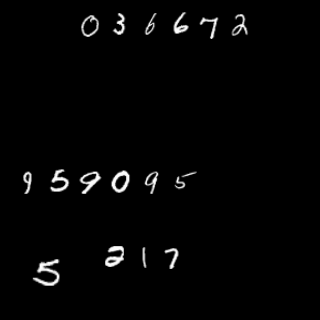 036672
959095
5 217